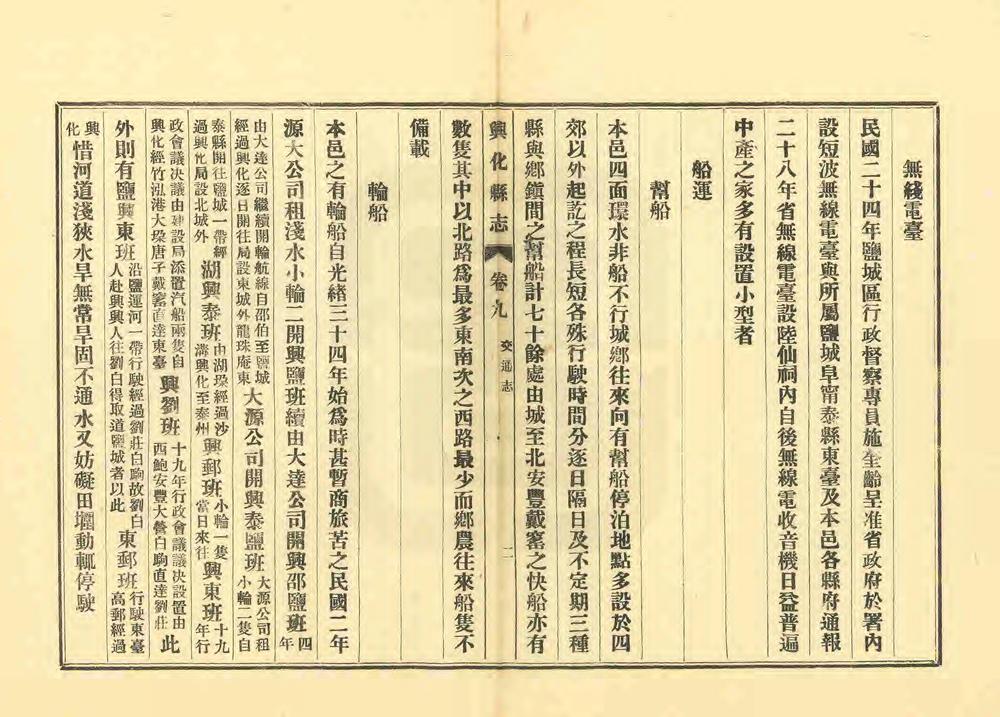 無綫電臺
民國二十四年鹽城區行政督察專員施奎齡呈准省政府於署內
設短波無線電臺與所屬鹽城阜甯泰縣東臺及本邑各縣府通報
二十八年省無線電臺設陸仙祠內自後無線電收音機日益普遍
中產之家多有設置小型者
船運
幫船
本邑四面環水非船不行城鄉往來向有幫船停泊地點多設於四
郊以外起訖之程長短各殊行駛時間分逐日隔日及不定期三種
縣與鄉鎮間之幫船計七十餘處由城至北安豐戴窰之快船亦有
興化縣志
卷九
交通志
二
數隻其中以北路爲最多東南次之西路最少而鄉農往來船隻不
備載
輪船
本邑之有輪船自光緒三十四年始爲時甚暫商旅苦之民國二年
源大公司租淺水小輪二開興鹽班續由大達公司開興邵鹽班四
年
由大達公司繼續開輪航線自邵伯至鹽城
經過興化逐日開往局設東城外龍珠庵東
大源公司開興泰鹽班
大源公司租
小輪二隻自
泰縣開往鹽城一帶經
過興化局設北城外
湖興泰班
由湖垛經過沙
溝興化至泰州
興郵班
小輪一隻
當日來往
興東班
十九
年行
政會議決議由建設局添置汽船兩隻自
興化經竹泓港大垛唐子戴窰直達東臺
興劉班
十九年行政會議議決設置由
西鮑安豐大營白駒直達劉莊
此
外則有鹽興東班
沿鹽運河一帶行駛經過劉莊白駒故劉白
人赴興興人往劉白得取道鹽城者以此
東郵班
行駛東臺
高郵經過
興
化
惜河道淺狹水旱無常旱固不通水又妨礙田壩動輒停駛